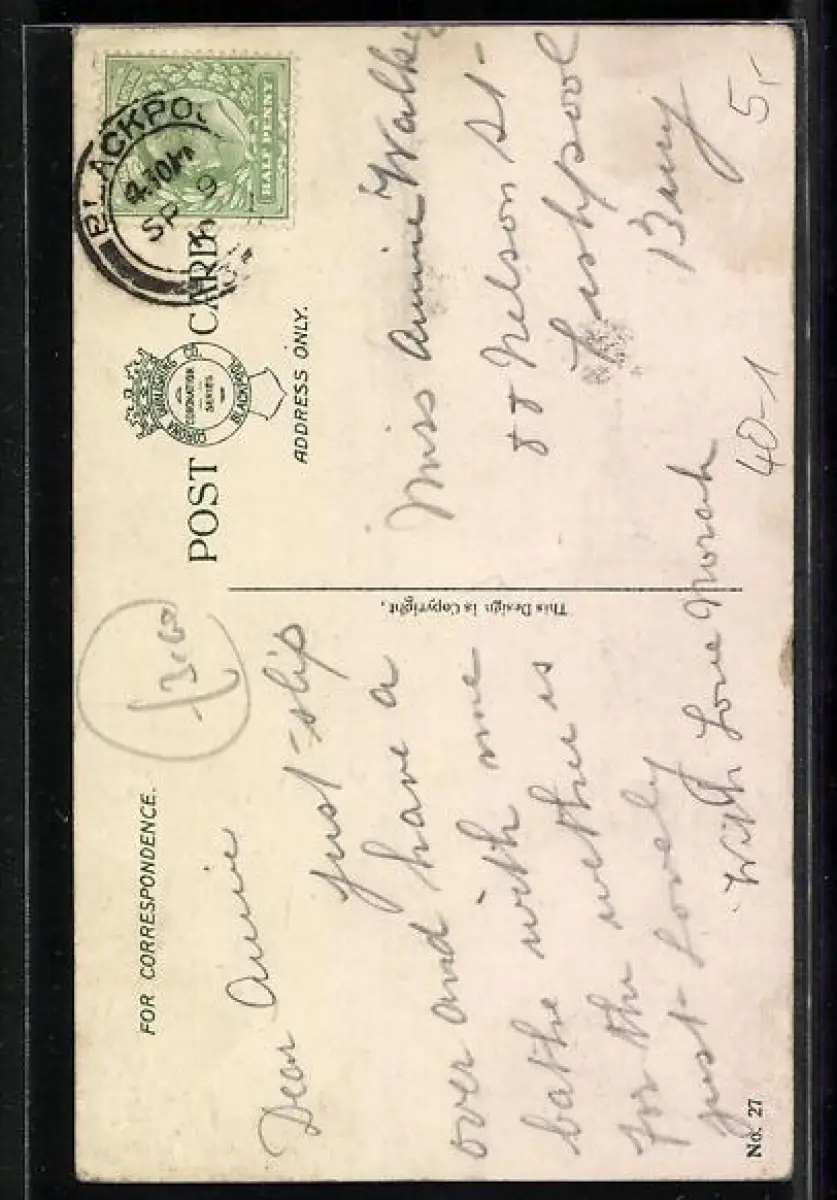 FOR CORRESPONDENCE.
Dear Annie
just slip
over and have a
bathe with me
for the wether is
just lovely
With Love Norah
No. 27
This Design is Copyright,
POST CARD
CORONA PUBLISHING CO.
BLACKPOOL
CORONATION
SERIES
ADDRESS ONLY.
HALF PENNY
BLACKPO
4.30 PM
SP 9
Miss Annie Walke
88 Nelson St
Bury
5,-
40-1